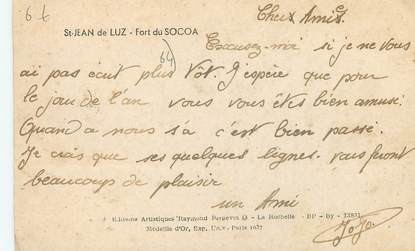 66
Chers Amis.
St-JEAN de LUZ - Fort du SOCOA
64
Excusez-moi si je ne vous
ai pas écrit plus tôt. J'espère que pour
le jour de l'an vous vous êtes bien amusé.
Quand a nous s'a c'est bien passé.
Je crois que ses quelques lignes vous feront
beaucoup de plaisir
un Ami
Jojo
Editions Artistiques Raymond Bergevin - La Rochelle - BP - By - 23831
Médaille d'Or, Exp. Univ. Paris 1937